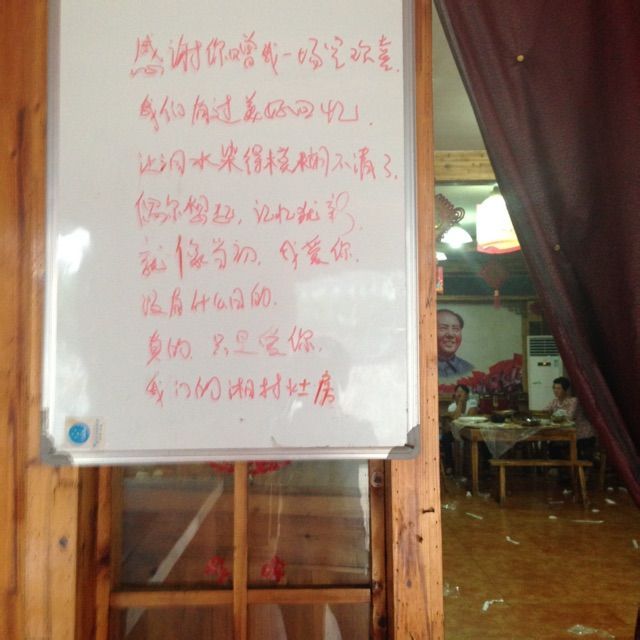 感谢你赠我一场空欢喜.
我们有过美好回忆.
让泪水染得模糊不清了.
偶尔想起, 记忆犹新
就像当初, 我爱你.
没有什么目的.
真的, 只是爱你.
我们的湘村灶房